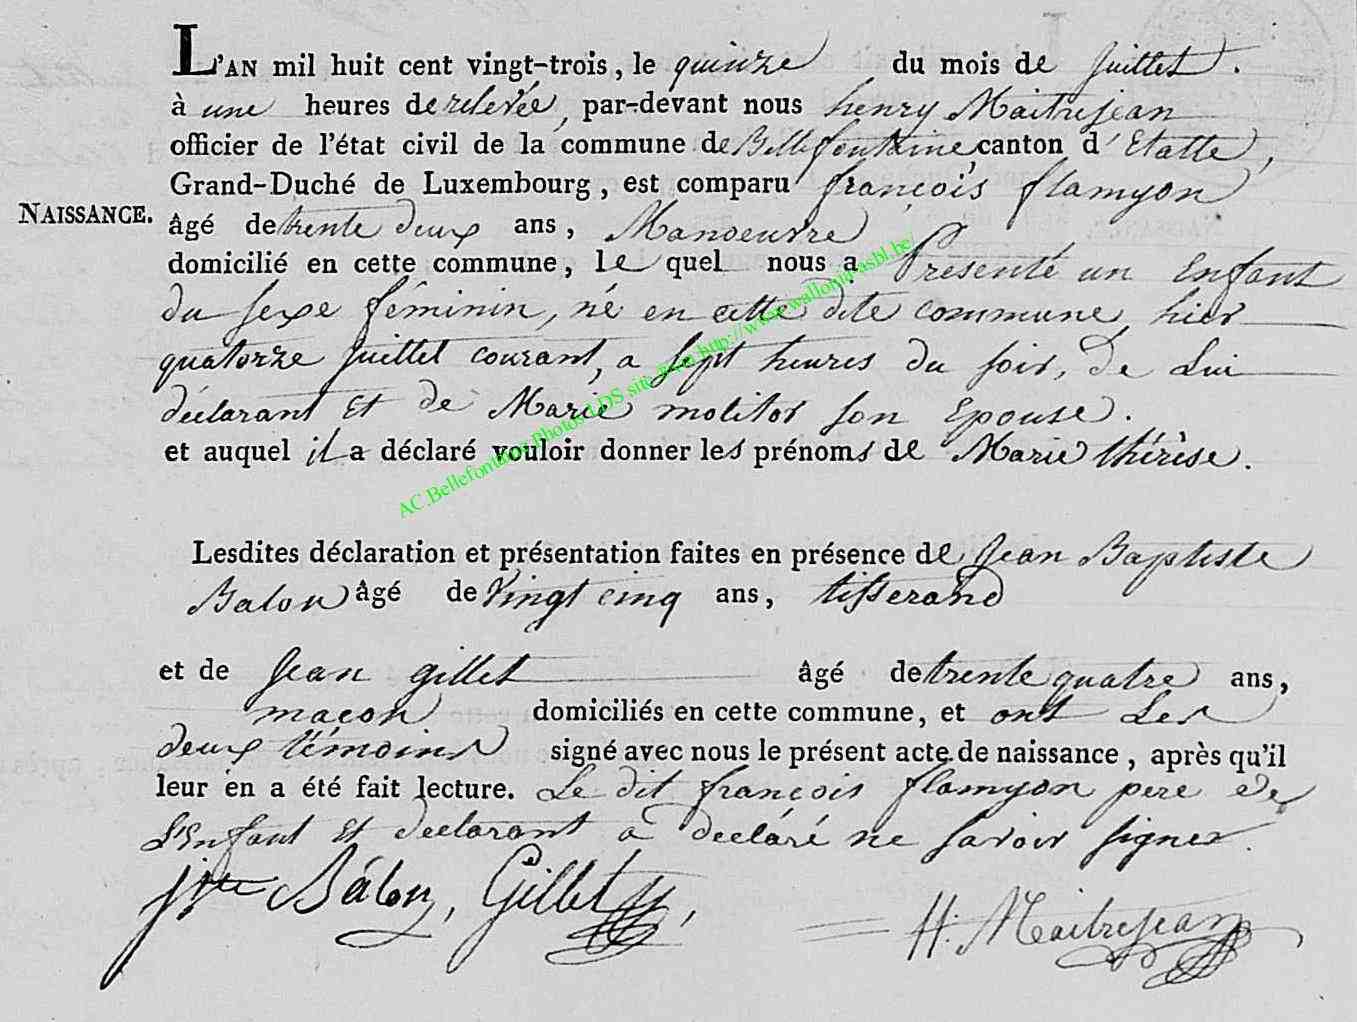 L'AN mil huit cent vingt-trois, le quinze du mois de juillet.
à une heures de relevée, par-devant nous henry Maitrejean
officier de l'état civil de la commune de Bellefontaine, canton d'Etalle,
Grand-Duché de Luxembourg, est comparu françois flamyon
NAISSANCE.
âgé de trente deux ans, Manoeuvre
domicilié en cette commune, le quel nous a Présenté un Enfant
du sexe féminin, né en cette dite commune, hier
quatorze juillet courant, a sept heures du soir, de Lui
déclarant Et de Marie molitor son Epouse.
et auquel il a déclaré vouloir donner les prénoms de Marie thérèse.
AC.Bellefontaine Photos LDS site http://www.wallonia-asbl.be/
Lesdites déclaration et présentation faites en présence de Jean Baptiste
Balon âgé de Vingt cinq ans, tisserand
et de Jean gillet âgé de trente quatre ans,
macon domiciliés en cette commune, et ont Les
deux témoins signé avec nous le présent acte de naissance, après qu'il
leur en a été fait lecture. Le dit françois flamyon pere de
L'Enfant Et declarant a declaré ne savoir signer.
Bálon, Gillet, H. Maitrejean